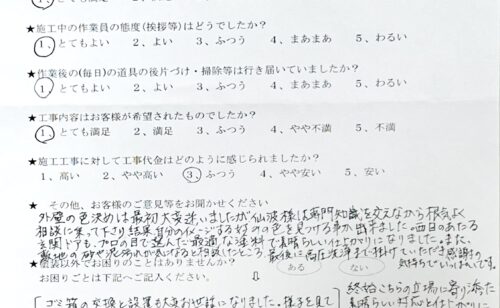 ★施工中の作業員の態度(挨拶等)はどうでしたか?
1、とてもよい 2、よい 3、ふつう 4、まあまあ 5、わるい
★作業後の(毎日)の道具の後片づけ・掃除等は行き届いていましたか?
1、とてもよい 2、よい 3、ふつう 4、まあまあ 5、わるい
★工事内容はお客様が希望されたものでしたか?
1、とても満足 2、満足 3、ふつう 4、やや不満 5、不満
★施工工事に対して工事代金はどのように感じられましたか?
1、高い 2、やや高い 3、ふつう 4、やや安い 5、安い
★ その他、お客様のご意見等をお聞かせください
外壁の色決めは最初大変迷いましたが仙波様は専門知識を交えながら根気よく
相談に乗って下さり結果自分のイメージする好みの色を見つける事が出来ました。西日のあたる
玄関ドアも、プロの目で選んだ最適な塗料で素晴らしい仕上がりになりました。また、
敷地の砂や泥汚れが気になると相談したところ、最後に高圧洗浄まで掛けていただき感謝の
気持ちでいっぱいです。
★塗装以外でお困りのことはありませんか? ある ない
お困りごとは下記へご記入ください。
ゴミ箱の交換と設置も大変お世話になりました。様子を見て
終始こちらの立場に寄り添った